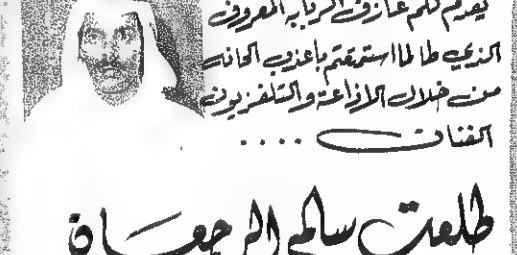 يقدم لكم عازف الربابه المعروف
الذي طالما استمتعتم بأعذب الحانه
من خلال الاذاعة والتلفزيون
الفنان ....
طلعت سالم الرجعان